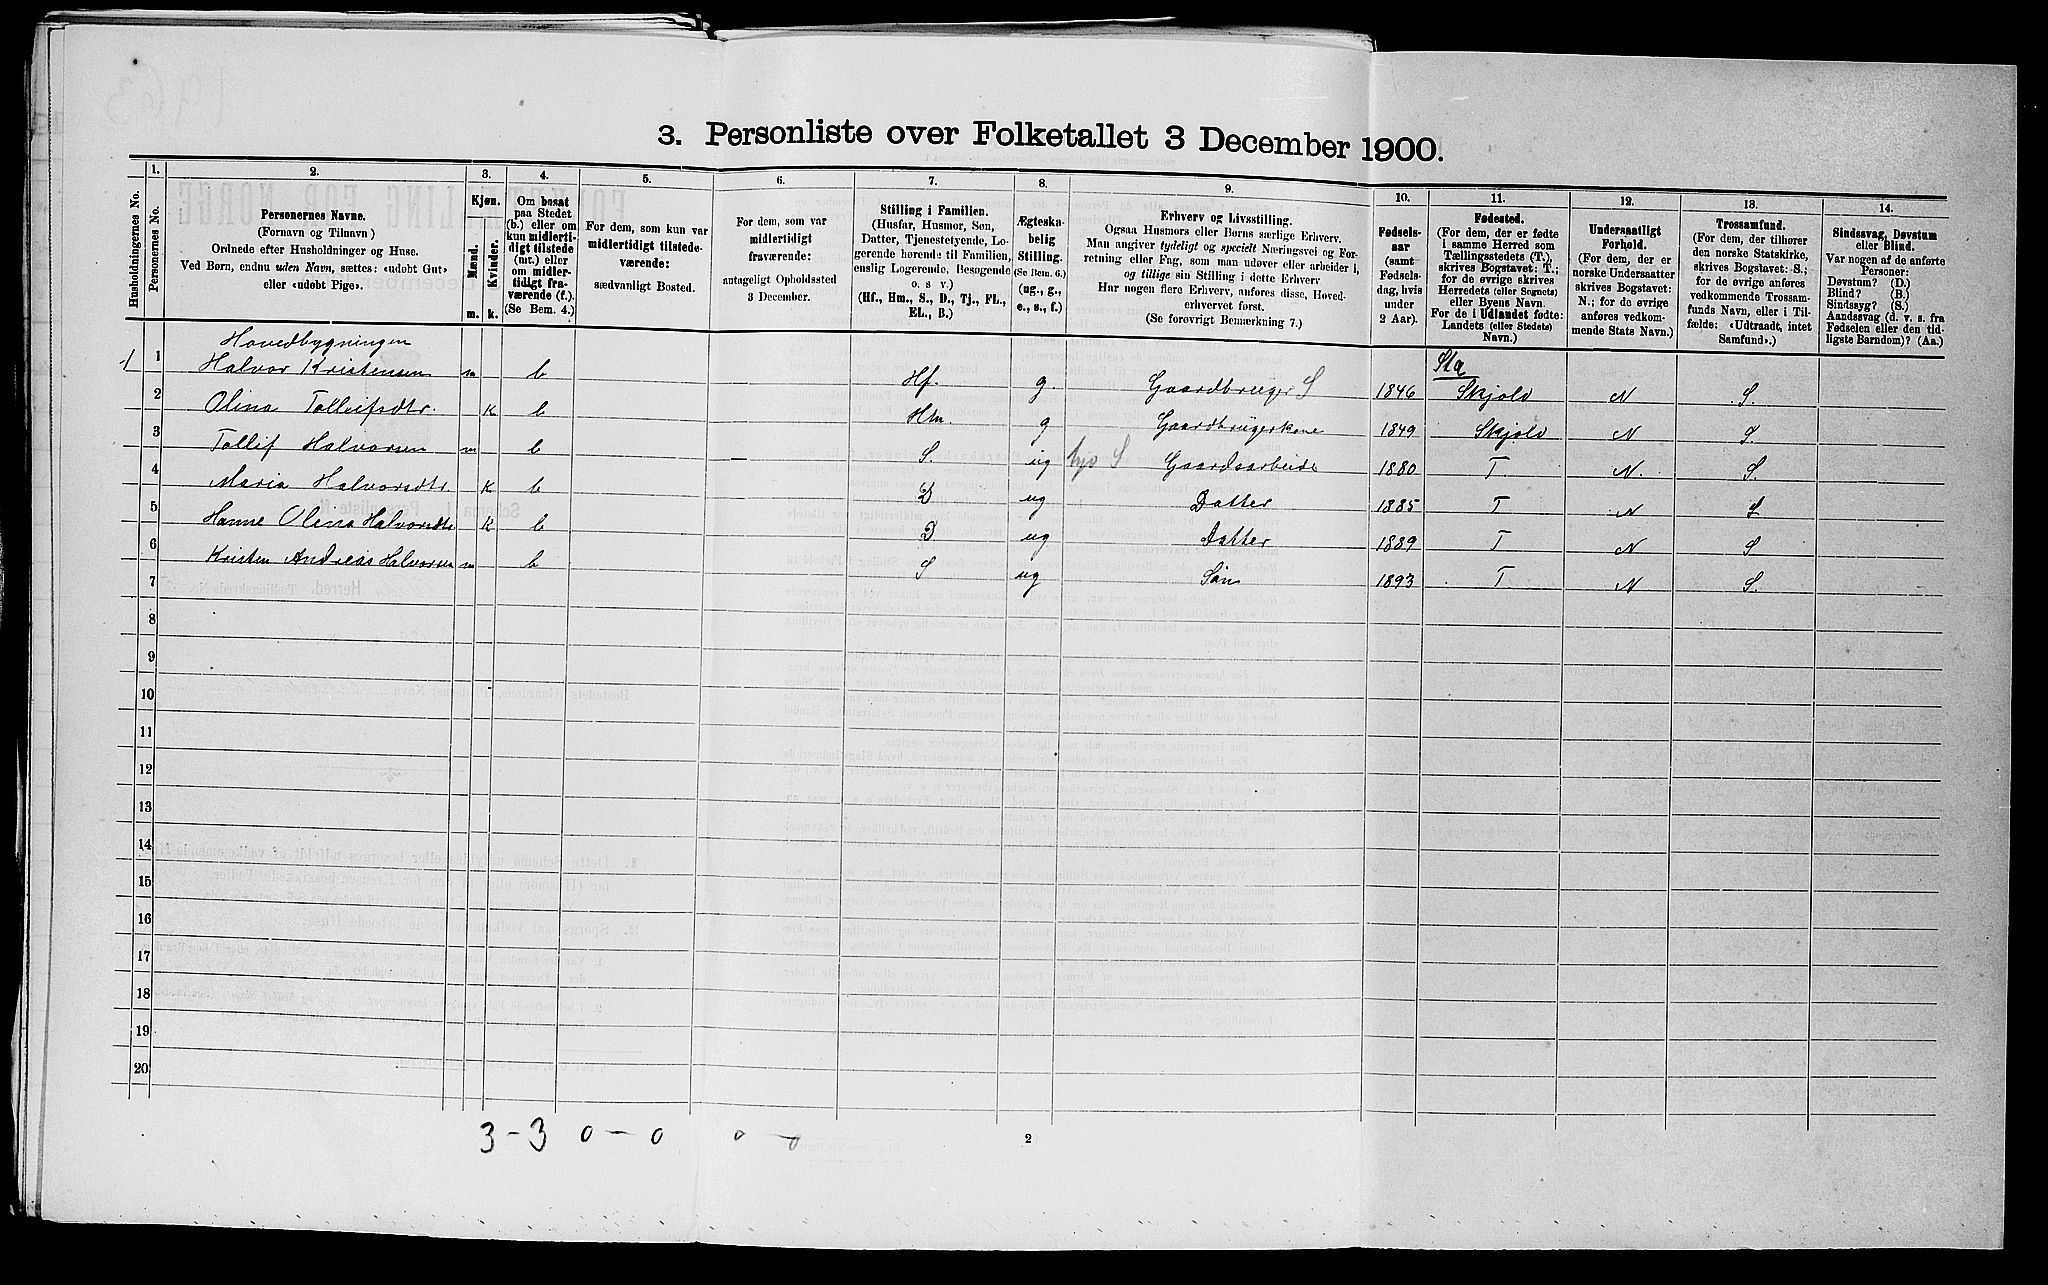 3. Personliste over Folketallet 3 December 1900.
1. 2. 3. 4. 5. 6. 7. 8. 9. 10. 11. 12. 13. 14.
Husholdningernes No.
Personernes No.
Personernes Navne.
(Fornavn og Tilnavn)
Ordnede efter Husholdninger og Huse.
Ved Børn, endnu uden Navn, sættes: «udøbt Gut»
eller «udøbt Pige».
Kjøn.
Mænd.
Kvinder.
m. k.
Om bosat
paa Stedet
(b.) eller om
kun midlerti-
digt tilstede
(mt.) eller
om midler-
tidigt fra-
værende (f.).
(Se Bem. 4.)
For dem, som kun var
midlertidigt tilstede-
værende:
sædvanligt Bosted.
For dem, som var
midlertidigt
fraværende:
antageligt Opholdssted
3 December.
Stilling i Familien.
(Husfar, Husmor, Søn,
Datter, Tjenestetyende, Lo-
gerende hørende til Familien,
enslig Logerende, Besøgende
o. s. v.)
(Hf., Hm., S., D., Tj., FL.,
EL., B.)
Ægteska-
belig
Stilling.
(Se Bem. 6.)
(ug., g.,
e., s., f.)
Erhverv og Livsstilling.
Ogsaa Husmors eller Børns særlige Erhverv.
Man angiver tydeligt og specielt Næringsvei og For-
retning eller Fag, som man udøver eller arbeider i,
og tillige sin Stilling i dette Erhverv
Har nogen flere Erhverv, anføres disse, Hoved-
erhvervet først.
(Se forøvrigt Bemærkning 7.)
Fødsels-
aar
(samt
Fødsels-
dag, hvis
under
2 Aar).
Fødested.
(For dem, der er fødte
i samme Herred som
Tællingsstedets (T.),
skrives Bogstavet: T.;
for de øvrige skrives
Herredets (eller Sognets)
eller Byens Navn.
For de i Udlandet fødte:
Landets (eller Stedets)
Navn.)
Undersaatligt
Forhold.
(For dem, der er
norske Undersaatter
skrives Bogstavet:
N.; for de øvrige
anføres vedkom-
mende Stats Navn.)
Trossamfund.
(For dem, der tilhører
den norske Statskirke,
skrives Bogstavet: S.;
for de øvrige anføres
vedkommende Trossam-
funds Navn, eller i Til-
fælde: «Udtraadt, intet
Samfund».)
Sindssvag, Døvstum
eller Blind.
Var nogen af de anførte
Personer:
Døvstum? (D.)
Blind? (B.)
Sindssyg? (S.)
Aandssvag (d. v. s. fra
Fødselen eller den tid-
ligste Barndom)? (Aa.)
Hovedbygningen
1 1 Halvor Kristensen m b Hf. g. Gaardbruger S 1846 Skjold N S.
2 Olina Tollefsdtr. K b Hm. g Gaardbrugerkone 1849 Skjold N S.
3 Tollif Halvorsen m b S. ug S Gaardsarbeide 1880 T. N. S.
4 Maria Halvorsdtr. K b D ug Datter 1885 T N S
5 Hanne Olena Halvorsdtr K b D ug Datter 1889 T N S
6 Kristen Andreas Halvorsen m b S ug Søn 1893 T N S.
7
8
9
10
11
12
13
14
15
16
17
18
19
20
3 - 3 0 - 0 0 - 0
2